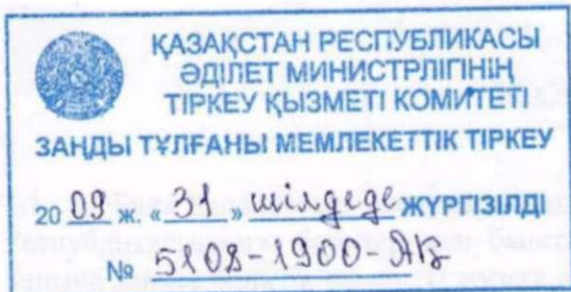 ҚАЗАҚСТАН РЕСПУБЛИКАСЫ
ӘДІЛЕТ МИНИСТРЛІГІНІҢ
ТІРКЕУ ҚЫЗМЕТІ КОМИТЕТІ
ЗАҢДЫ ТҰЛҒАНЫ МЕМЛЕКЕТТІК ТІРКЕУ
20 09 ж. « 31 » шілдеде ЖҮРГІЗІЛДІ
№ 5108-1900-